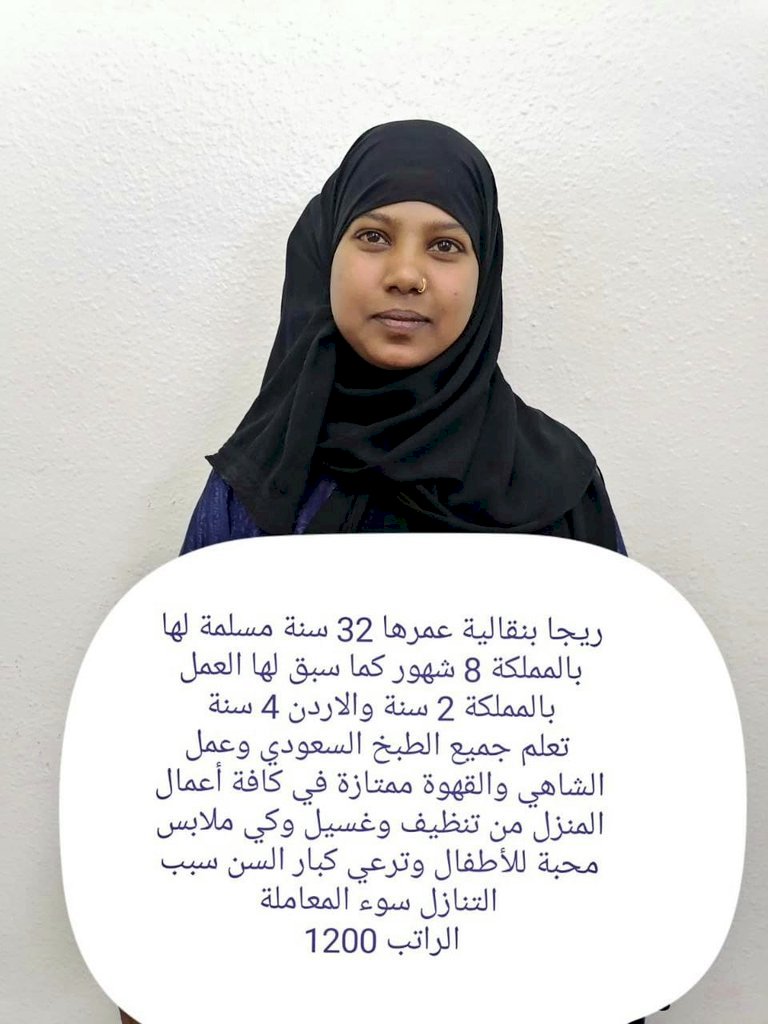 ريجا بنقالية عمرها 32 سنة مسلمة لها
بالمملكة 8 شهور كما سبق لها العمل
بالمملكة 2 سنة والاردن 4 سنة
تعلم جميع الطبخ السعودي وعمل
الشاهي والقهوة ممتازة في كافة أعمال
المنزل من تنظيف وغسيل وكي ملابس
محبة للأطفال وترعي كبار السن سبب
التنازل سوء المعاملة
الراتب 1200